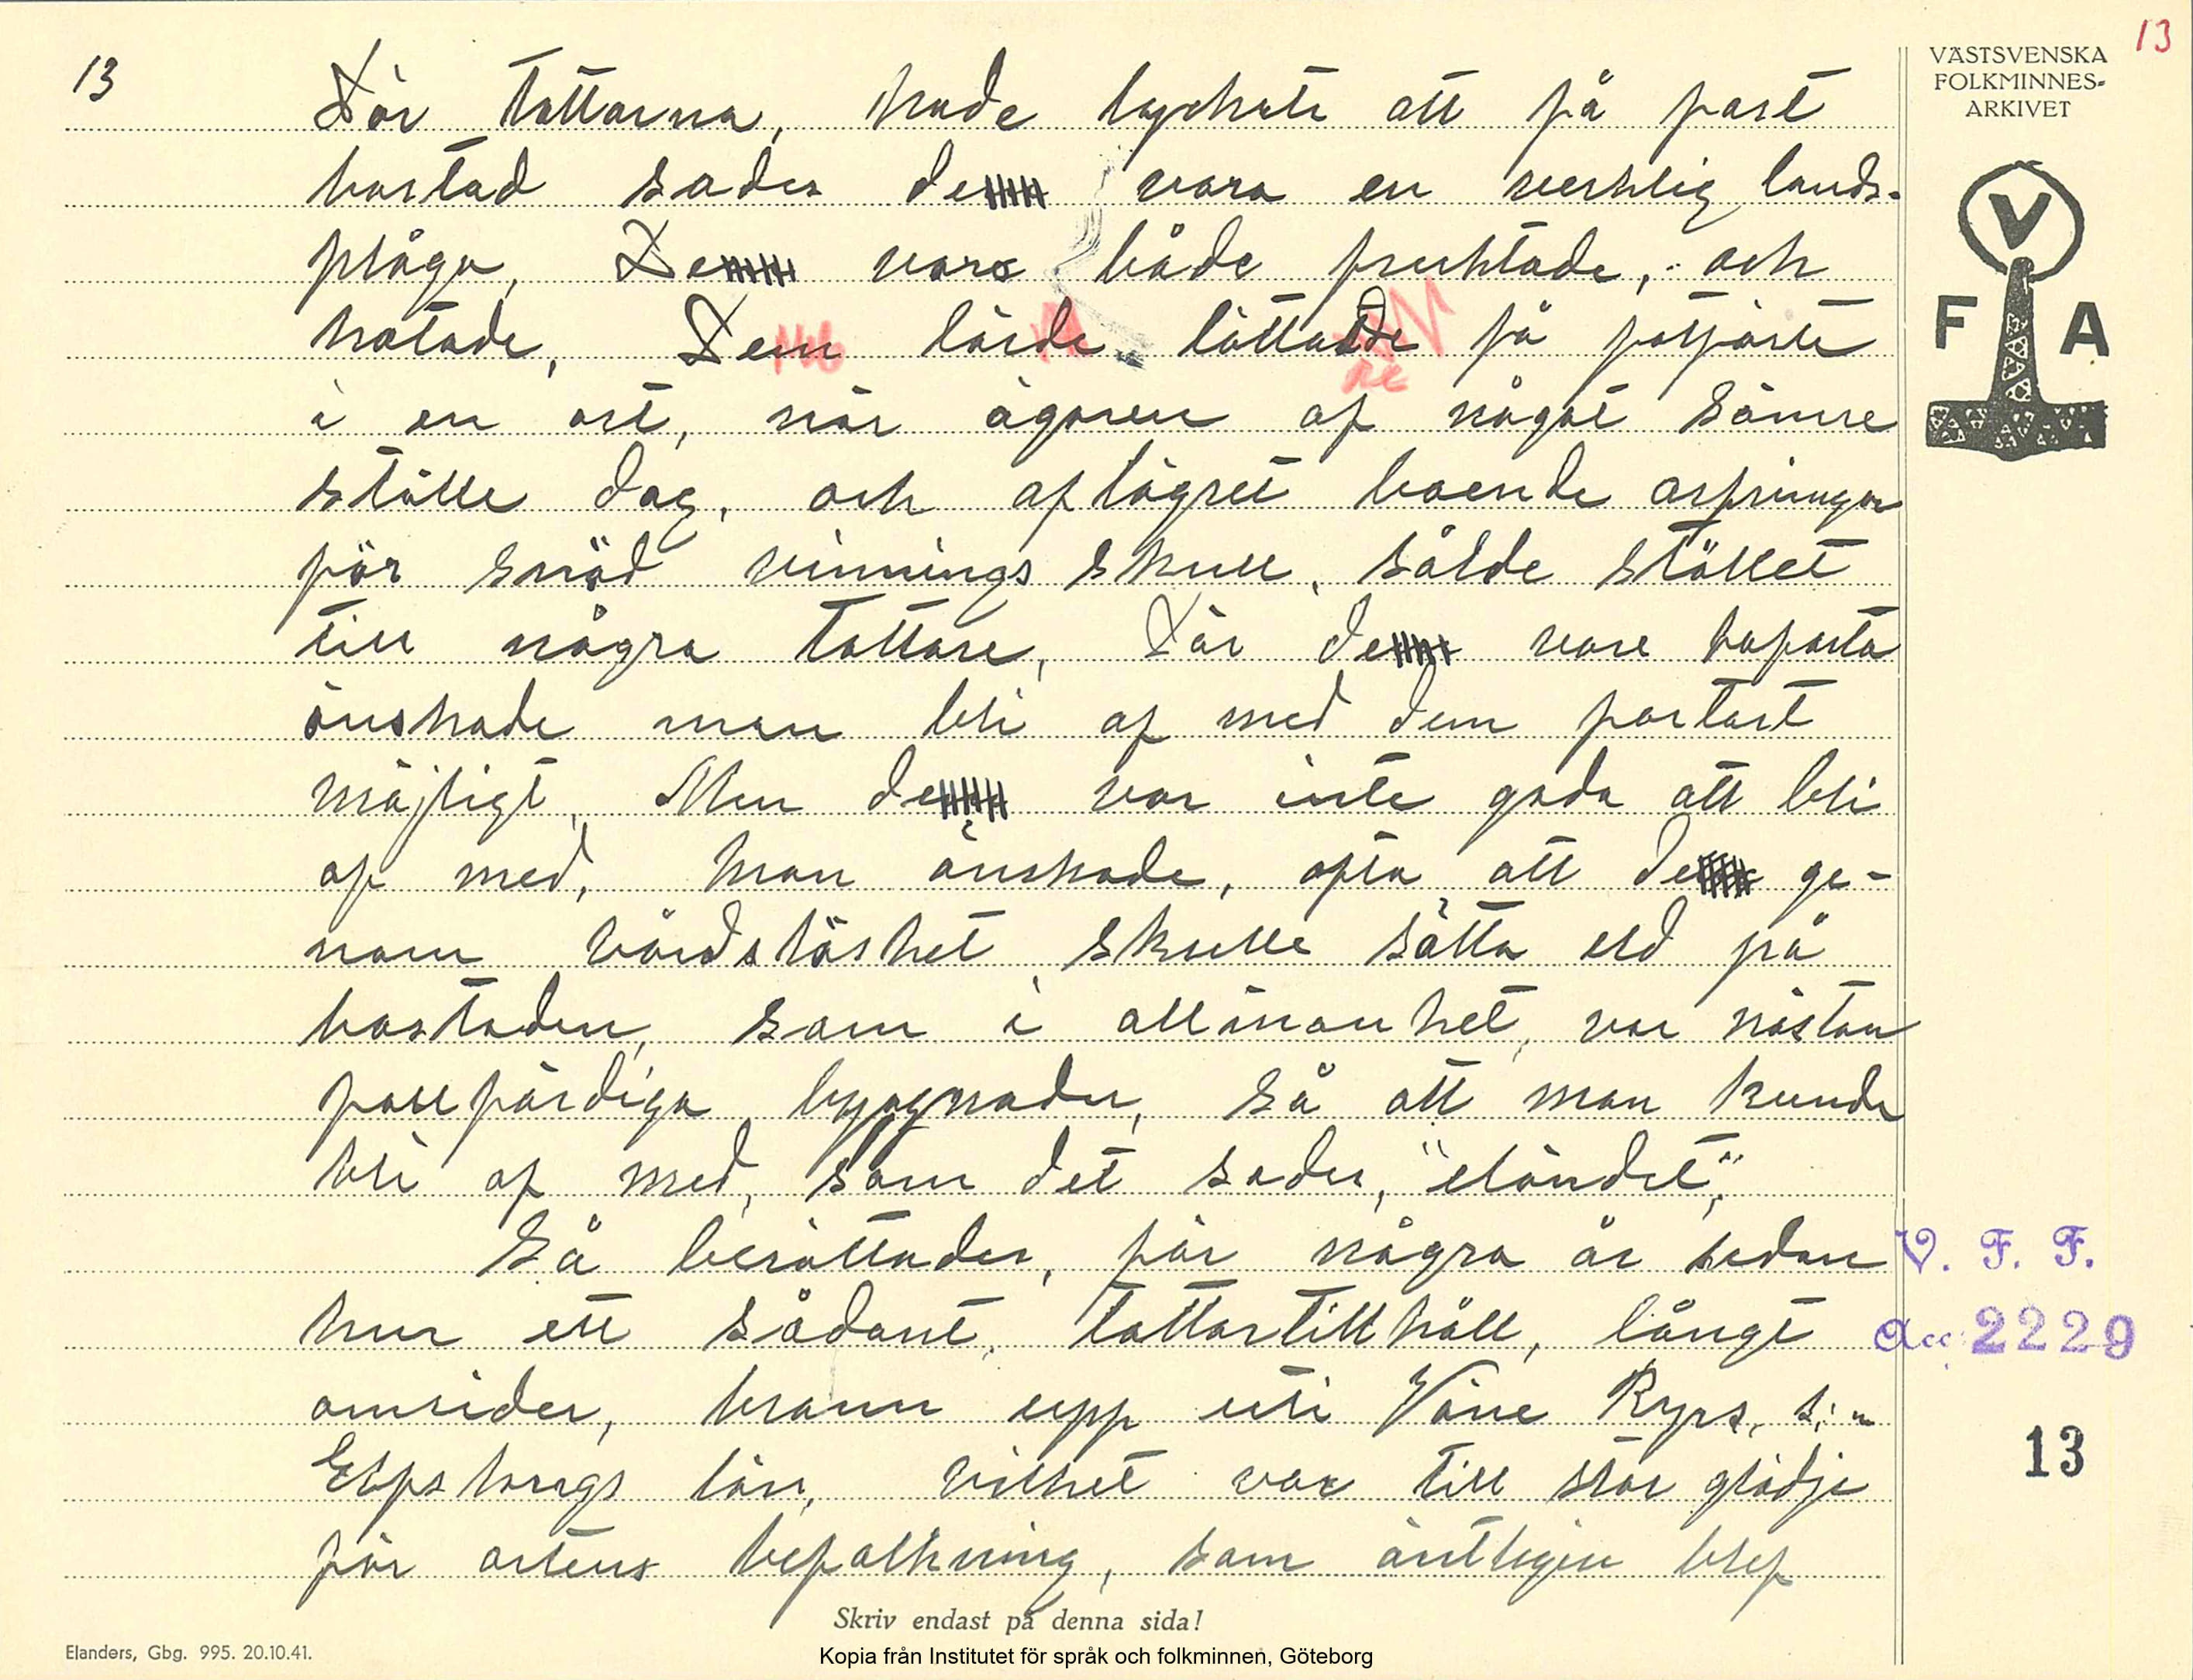 13
VÄSTSVENSKA
FOLKMINNES-
ARKIVET
13
Där tattarna, hade lyckats att få fast
bostad sades de vara en verklig lands-
plåga, De vara både fruktade, och
hatade, Dem lärde lättade få fotfäste
i en ort, när ägaren af något sämre
ställe dog, och aflägset boende arfvingar
för snöd vinnings skull, sålde stället
till några tattare, Där de vare bofasta
önskade man bli af med dem fortast
möjligt, Men de var inte goda att bli
af med, Man önskade, ofta att de ge-
nom vårdslöshet skulle sätta eld på
bostaden, som i allmänhet, var nästan
fallfärdiga byggnader, så att man kunde
bli af med, som det sades, "eländet",
Så berättades, för några år sedan
hur ett sådant, tattartillhåll, långt
omsider, brann upp uti Väne Ryrs, s:n
Elfsborgs län, vilket var till stor glädje
för ortens befolkning, som äntligen blef
V
F A
V. F. F.
Acc 2229
13
Skriv endast på denna sida!
Elanders, Gbg. 995. 20.10.41.
Kopia från Institutet för språk och folkminnen, Göteborg